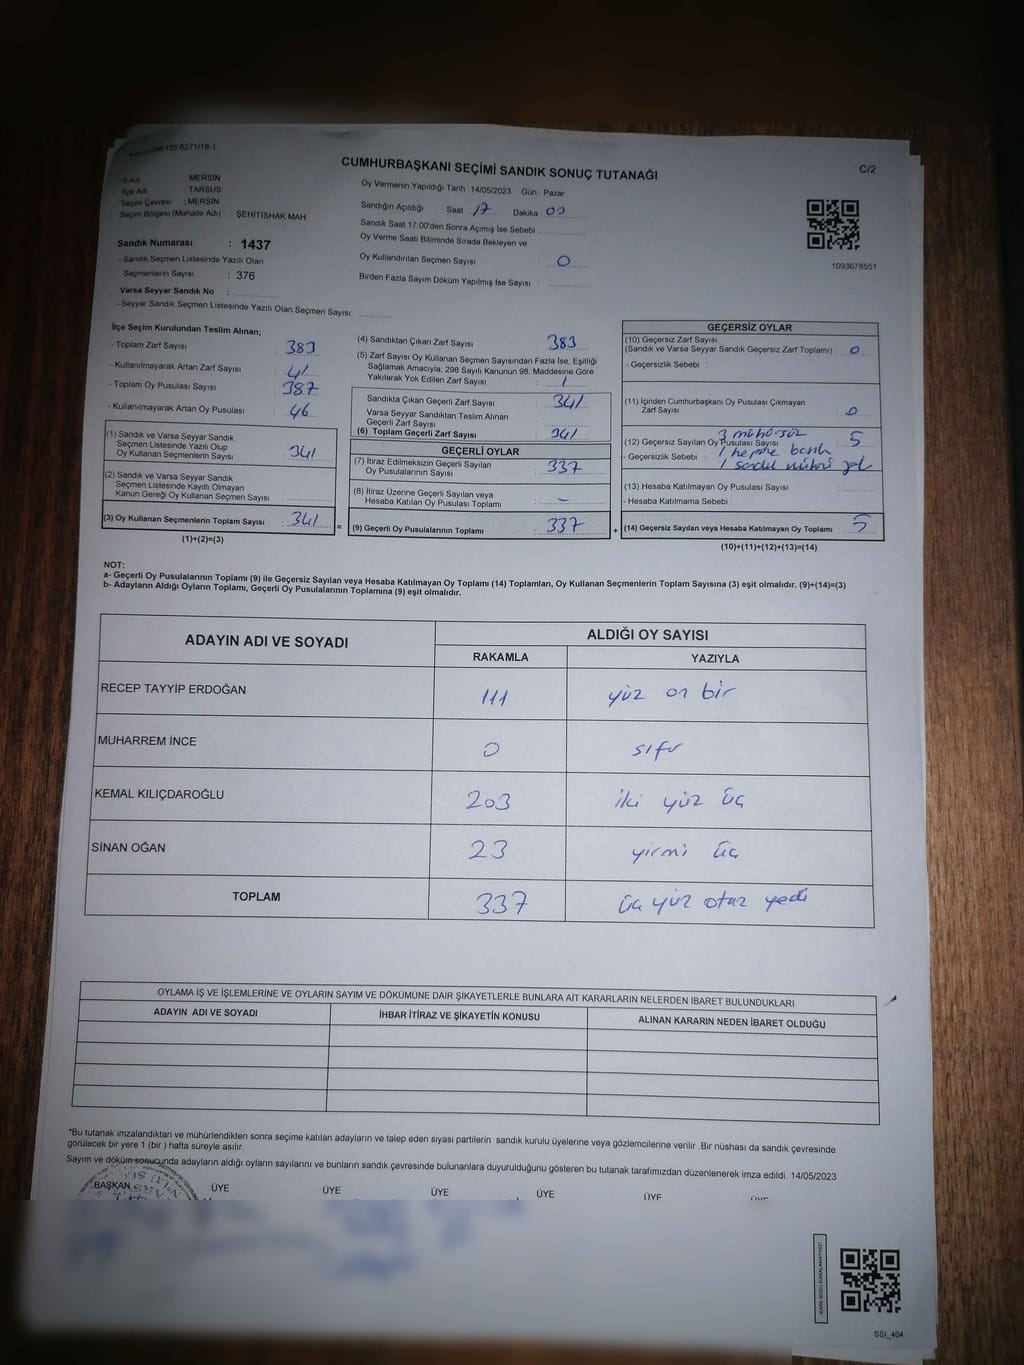 CUMHURBAŞKANI SEÇİMİ SANDIK SONUÇ TUTANAĞI
C/2
İl Adı : MERSİN
İlçe Adı : TARSUS
Seçim Çevresi : MERSİN
Seçim Bölgesi (Mahalle Adı) : ŞEHİTİSHAK MAH
Sandık Numarası : 1437
- Sandık Seçmen Listesinde Yazılı Olan
Seçmenlerin Sayısı : 376
Varsa Seyyar Sandık No :
- Seyyar Sandık Seçmen Listesinde Yazılı Olan Seçmen Sayısı:
Oy Vermenin Yapıldığı Tarih :14/05/2023 Gün : Pazar
Sandığın Açıldığı Saat : 17 Dakika : 00
Sandık Saat 17:00'den Sonra Açımış İse Sebebi :
Oy Verme Saati Bitiminde Sırada Bekleyen ve
Oy Kullandırılan Seçmen Sayısı : 0
Birden Fazla Sayım Döküm Yapılmış İse Sayısı :
1093678551
İlçe Seçim Kurulundan Teslim Alınan;
- Toplam Zarf Sayısı : 383
- Kullanılmayarak Artan Zarf Sayısı : 41
- Toplam Oy Pusulası Sayısı : 387
- Kullanılmayarak Artan Oy Pusulası : 46
(1) Sandık ve Varsa Seyyar Sandık
Seçmen Listesinde Yazılı Olup
Oy Kullanan Seçmenlerin Sayısı : 341
(2) Sandık ve Varsa Seyyar Sandık
Seçmen Listesinde Kayıtlı Olmayan
Kanun Gereği Oy Kullanan Seçmen Sayısı :
(3) Oy Kullanan Seçmenlerin Toplam Sayısı : 341
(1)+(2)=(3)
(4) Sandıktan Çıkan Zarf Sayısı : 383
(5) Zarf Sayısı Oy Kullanan Seçmen Sayısından Fazla İse, Eşitliği
Sağlamak Amacıyla; 298 Sayılı Kanunun 98. Maddesine Göre
Yakılarak Yok Edilen Zarf Sayısı : 1
Sandıkta Çıkan Geçerli Zarf Sayısı : 341
Varsa Seyyar Sandıktan Teslim Alınan
Geçerli Zarf Sayısı :
(6) Toplam Geçerli Zarf Sayısı : 341
GEÇERLİ OYLAR
(7) İtiraz Edilmeksizin Geçerli Sayılan
Oy Pusulalarının Sayısı : 337
(8) İtiraz Üzerine Geçerli Sayılan veya
Hesaba Katılan Oy Pusulası Toplamı : -
= (9) Geçerli Oy Pusulalarının Toplamı : 337
GEÇERSİZ OYLAR
(10) Geçersiz Zarf Sayısı
(Sandık ve Varsa Seyyar Sandık Geçersiz Zarf Toplamı) : 0
- Geçersizlik Sebebi :
(11) İçinden Cumhurbaşkanı Oy Pusulası Çıkmayan
Zarf Sayısı : 0
3 mühürsüz
(12) Geçersiz Sayılan Oy Pusulası Sayısı : 5
- Geçersizlik Sebebi : 1 hepsine basılı
1 sandık mührü yok
(13) Hesaba Katılmayan Oy Pusulası Sayısı :
- Hesaba Katılmama Sebebi :
+ (14) Geçersiz Sayılan veya Hesaba Katılmayan Oy Toplamı : 5
(10)+(11)+(12)+(13)=(14)
NOT:
a- Geçerli Oy Pusulalarının Toplamı (9) ile Geçersiz Sayılan veya Hesaba Katılmayan Oy Toplamı (14) Toplamları, Oy Kullanan Seçmenlerin Toplam Sayısına (3) eşit olmalıdır. (9)+(14)=(3)
b- Adayların Aldığı Oyların Toplamı, Geçerli Oy Pusulalarının Toplamına (9) eşit olmalıdır.
ADAYIN ADI VE SOYADI ALDIĞI OY SAYISI
RAKAMLA YAZIYLA
RECEP TAYYİP ERDOĞAN 111 yüz on bir
MUHARREM İNCE 0 sıfır
KEMAL KILIÇDAROĞLU 203 iki yüz üç
SİNAN OĞAN 23 yirmi üç
TOPLAM 337 üç yüz otuz yedi
OYLAMA İŞ VE İŞLEMLERİNE VE OYLARIN SAYIM VE DÖKÜMÜNE DAİR ŞİKAYETLERLE BUNLARA AİT KARARLARIN NELERDEN İBARET BULUNDUKLARI
ADAYIN ADI VE SOYADI İHBAR İTİRAZ VE ŞİKAYETİN KONUSU ALINAN KARARIN NEDEN İBARET OLDUĞU
*Bu tutanak imzalandıktan ve mühürlendikten sonra seçime katılan adayların ve talep eden siyasi partilerin sandık kurulu üyelerine veya gözlemcilerine verilir .Bir nüshası da sandık çevresinde
görülecek bir yere 1 (bir ) hafta süreyle asılır.
Sayım ve döküm sonucunda adayların aldığı oyların sayılarını ve bunların sandık çevresinde bulunanlara duyurulduğunu gösteren bu tutanak tarafımızdan düzenlenerek imza edildi. 14/05/2023
BAŞKAN ÜYE ÜYE ÜYE ÜYE ÜYE ÜYE
SSI_404